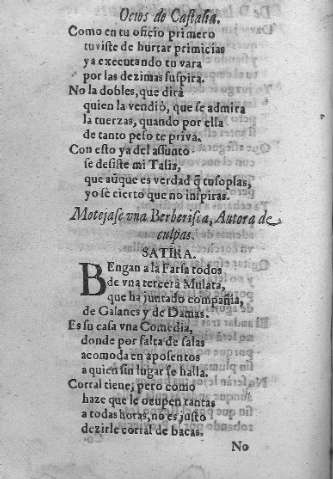 Ocios de Castalia.
Como en tu oficio primero
tuviste de hurtar primicias
ya executando tu vara
por las dezimas suspira.
No la dobles, que dirà
quien la vendiò, que se admira
la tuerzas, quando por ella
de tanto peso te priva.
Con esto ya del assunto
se desiste mi Talia,
que aũque es verdad q̃ tu soplas,
yo sè cierto que no inspiras.
Motejase vna Berberisca, Autora de
culpas.
SATIRA.
BEngan a la Farsa todos
de vna tercera Mulata,
que ha juntado compañia,
de Galanes y de Damas.
Es su casa vna Comedia,
donde por falta de salas
acomoda en aposentos
a quien sin lugar se halla.
Corral tiene; pero como
haze que le ocupen tantas
a todas horas, no es justo
dezirle corral de bacas.
No